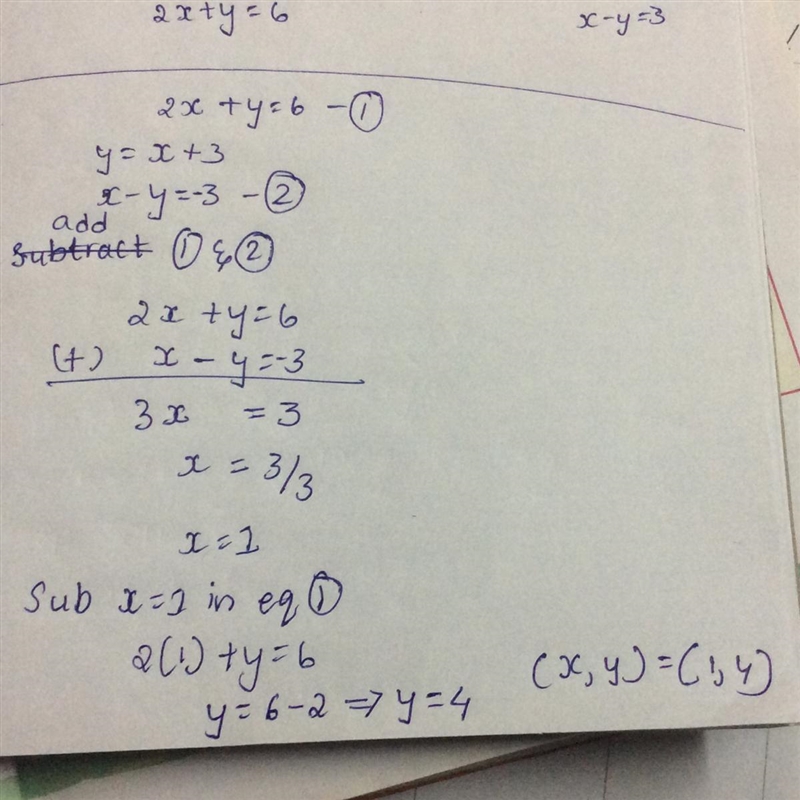 2x+y=6 x-y=3
2x+y=6 -①
y=x+3
x-y=-3 -②
add
subtract ① & ②
2x+y=6
(+) x-y=-3
3x =3
x=3/3
x=1
Sub x=1 in eq ①
2(1)+y=6
y=6-2⇒y=4
(x,y)=(1,4)